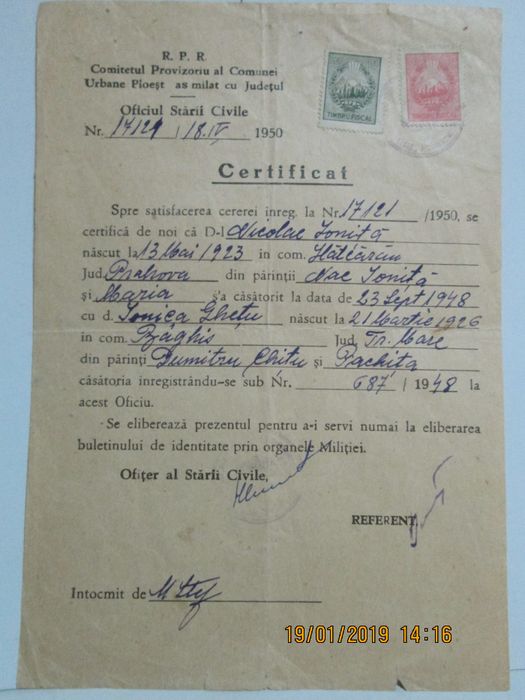 R. P. R.
Comitetul Provizoriu al Comunei
Urbane Ploești as milat cu Județul
Oficiul Stării Civile
Nr. 17121 / 18.IV. 1950
TIMBRU FISCAL
Certificat
Spre satisfacerea cererei inreg. la Nr. 17121 /1950, se
certifică de noi că D-l Nicolae Ioniță
născut la 13 Mai 1923 in com.
Jud. Prahova din părinții Nae Ioniță
și Maria s'a căsătorit la data de 23 Sept 1948
cu d. Ionica Ghețu născut la 21 Martie 1926
in com. Băghis Jud. Tr. Mare
din părinți Dumitru Chițu și Rachița
căsătoria inregistrându-se sub Nr. 687 / 1948 la
acest Oficiu.
Se eliberează prezentul pentru a-i servi numai la eliberarea
buletinului de identitate prin organele Miliției.
Ofițer al Stării Civile,
REFERENT,
Intocmit de
19/01/2019 14:16